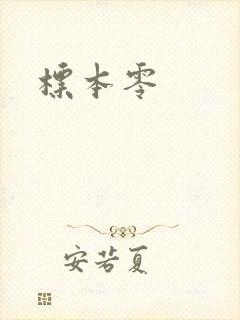 標本零
安若夏